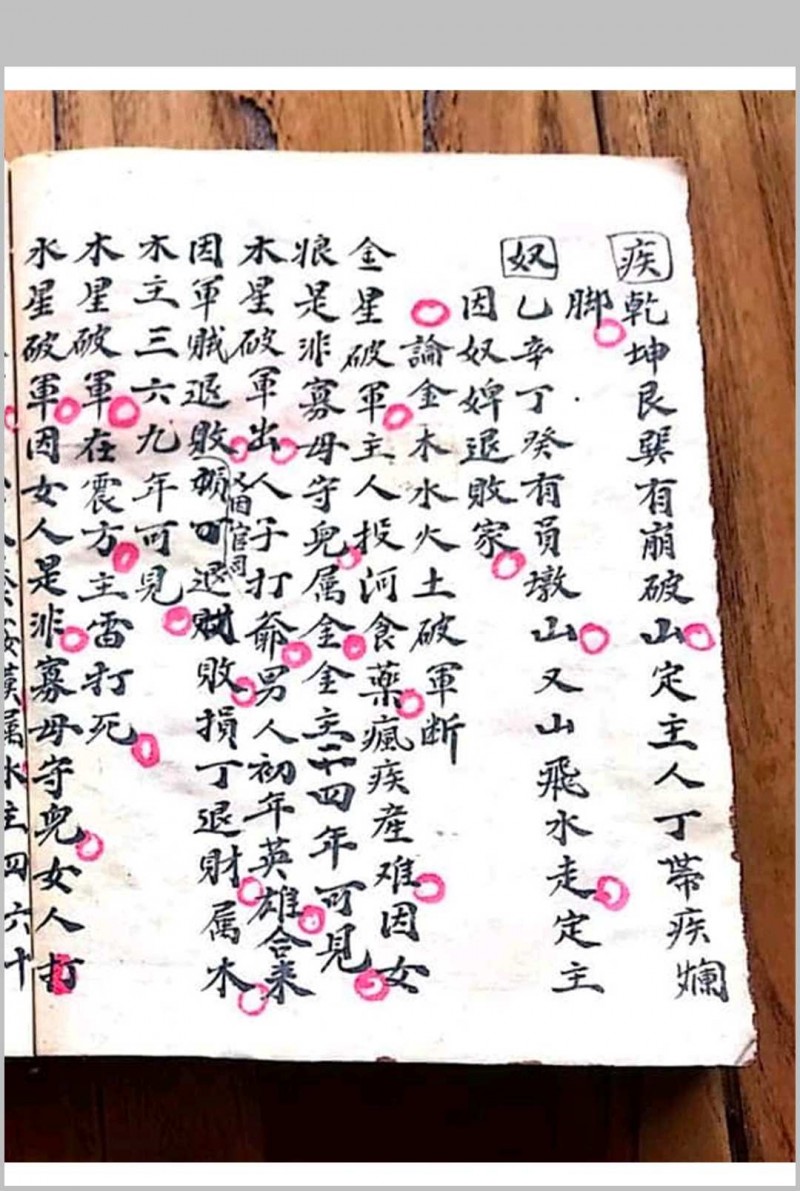 疾 乾坤艮巽有崩破山定主人丁帶疾爛
脚
奴 乙辛丁癸有員墩山又山飛水走定主
因奴婢退敗家
論金木水火土破軍断
金星破軍主人投河食藥瘋疾産难因女
娘是非寡母守兒属金金主二十四年可見
木星破军出人子打爺男人初年英雄合来
因軍賊退敗 又因官司 退財敗損丁退財属木
木主三六九年可見
木星破軍在震方主雷打死
水星破軍因女人是非寡母守兒女人打
属水主四六十